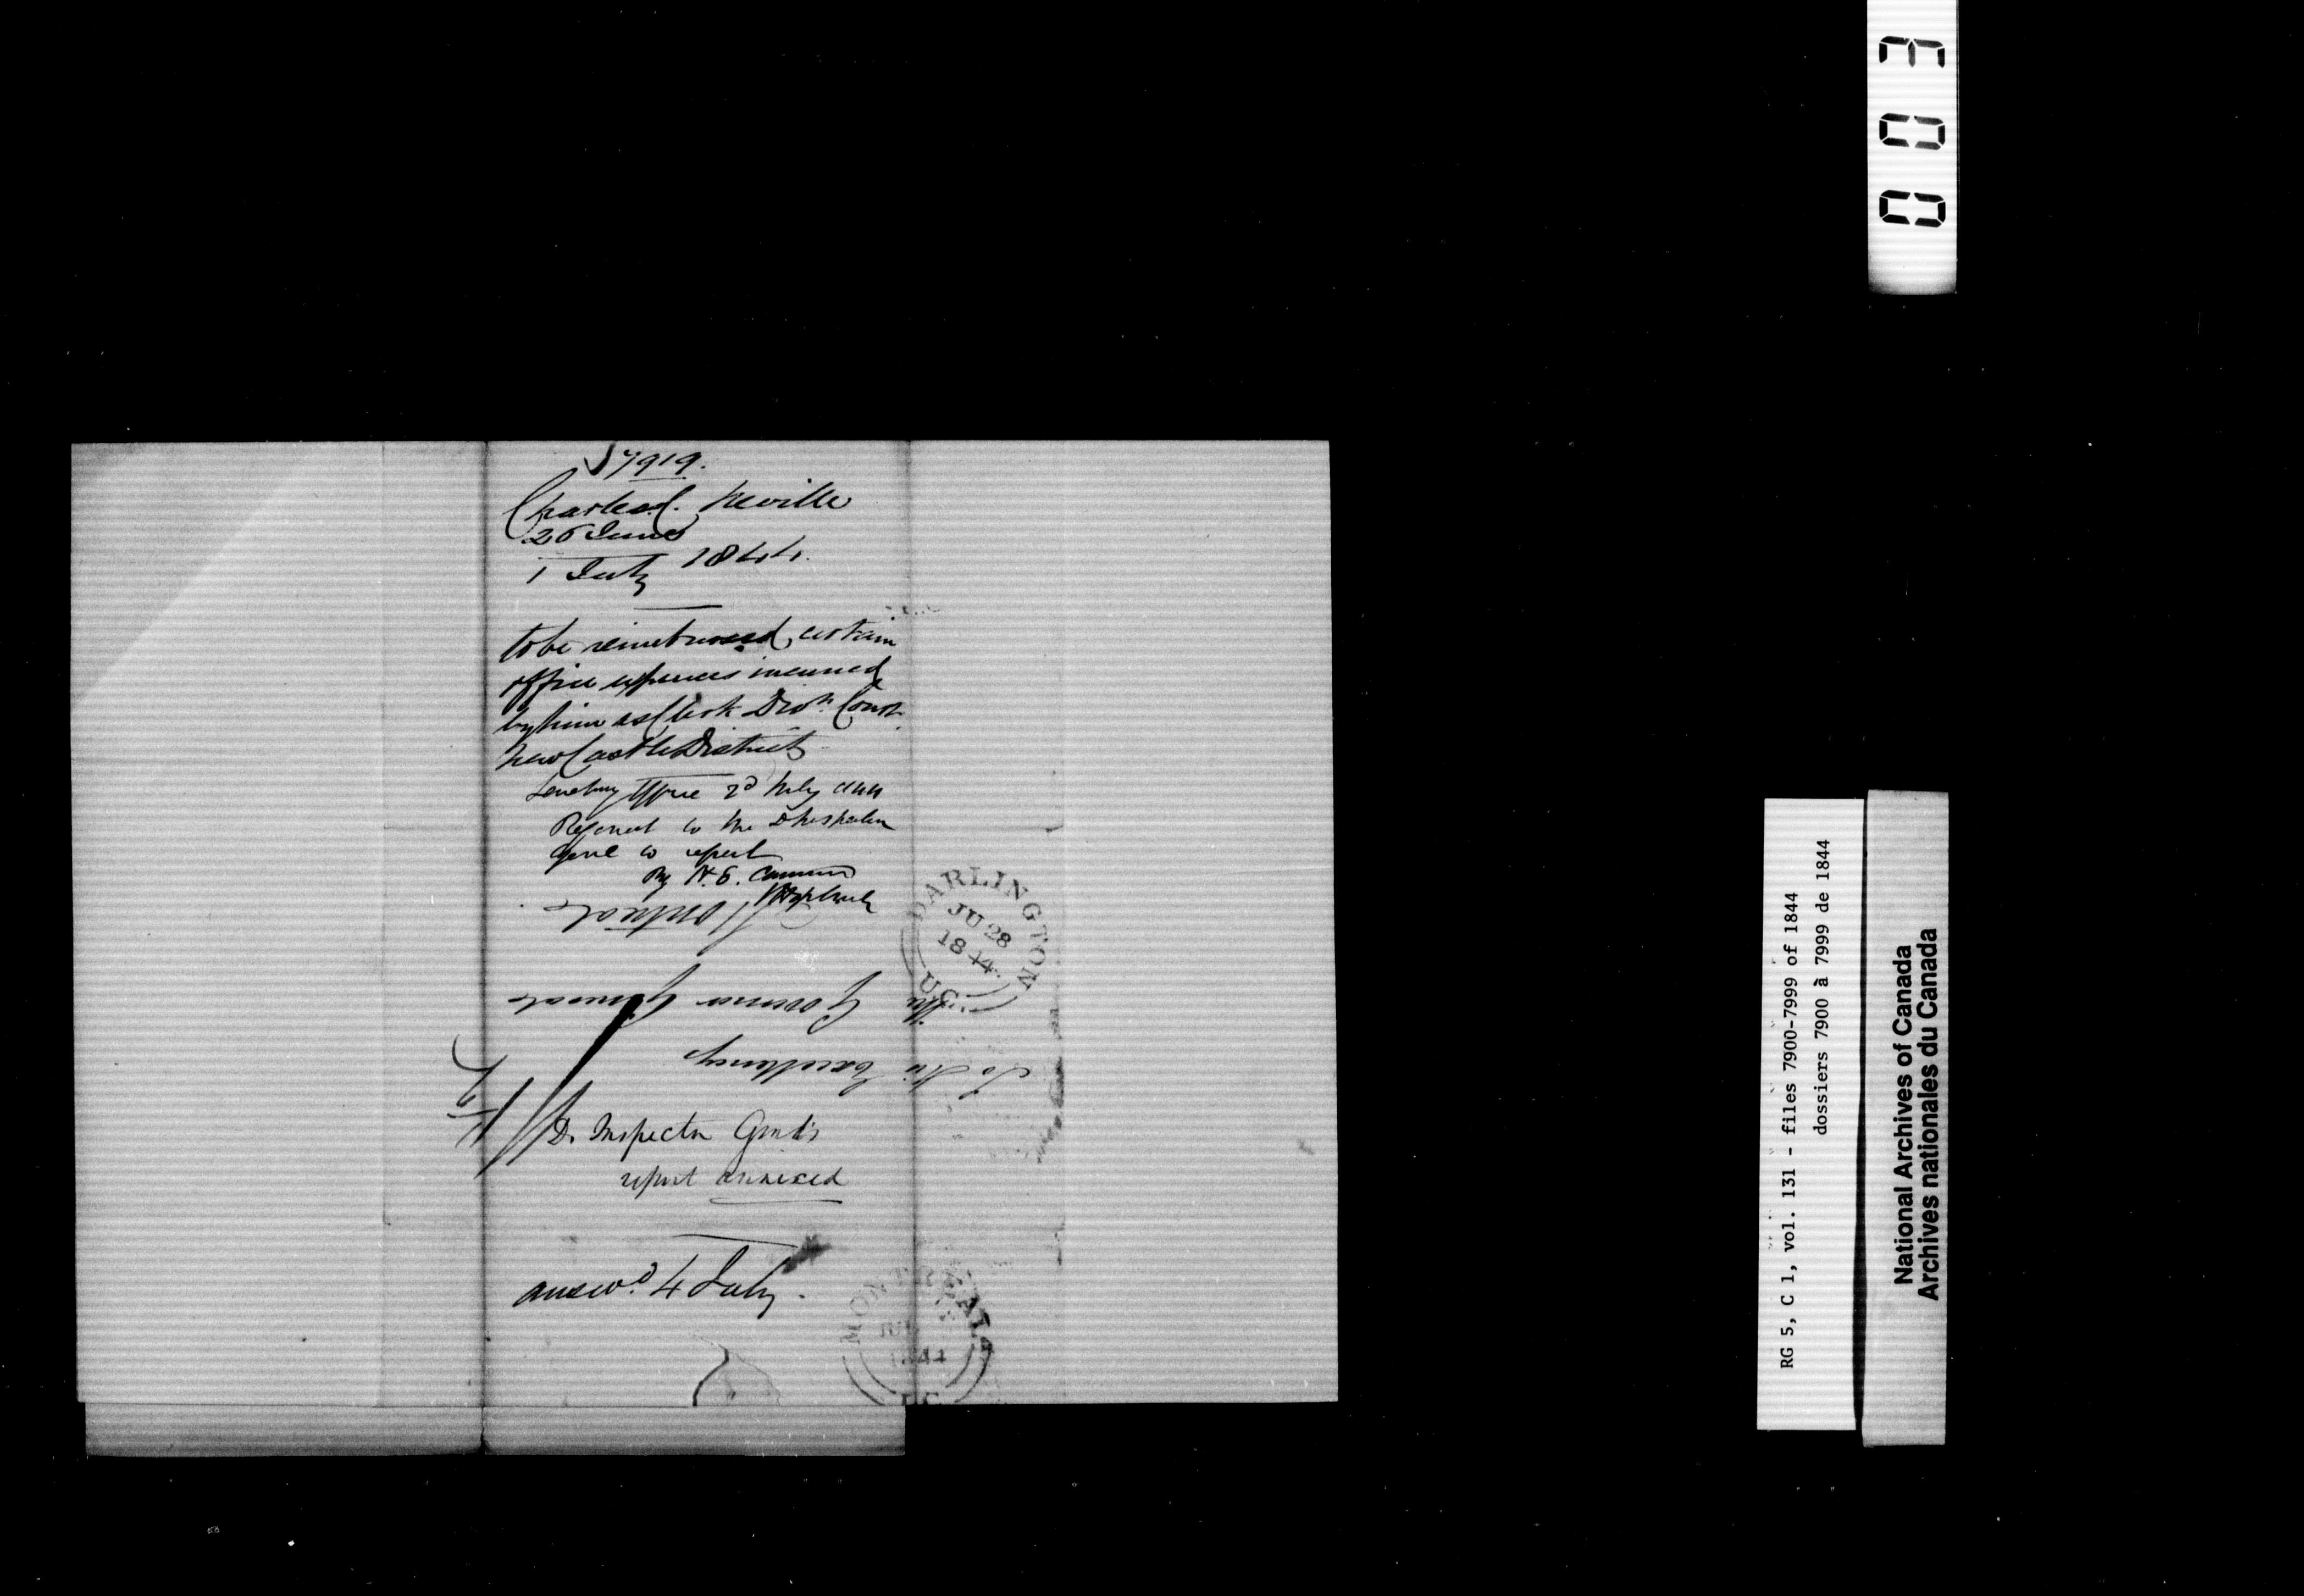 7919.
Charles C. Neville
26 June
1 July 1844.
to be reimbursed, certain
office expenses incurred
by him as Clerk Divn. Court
New Castle District
Secretary's Office 2d July 1844
Referred to the D Inspector
Genl to report
By H. E. Command
Montreal
The Governor General
To His Excellency
D. Inspector Genl's
report annexed
answd. 4 July.
DARLINGTON
JU 28
1844.
U.C.
MONTREAL
JUL
1844
003
RG 5, C 1, vol. 131 - files 7900-7999 of 1844
dossiers 7900 à 7999 de 1844
National Archives of Canada
Archives nationales du Canada